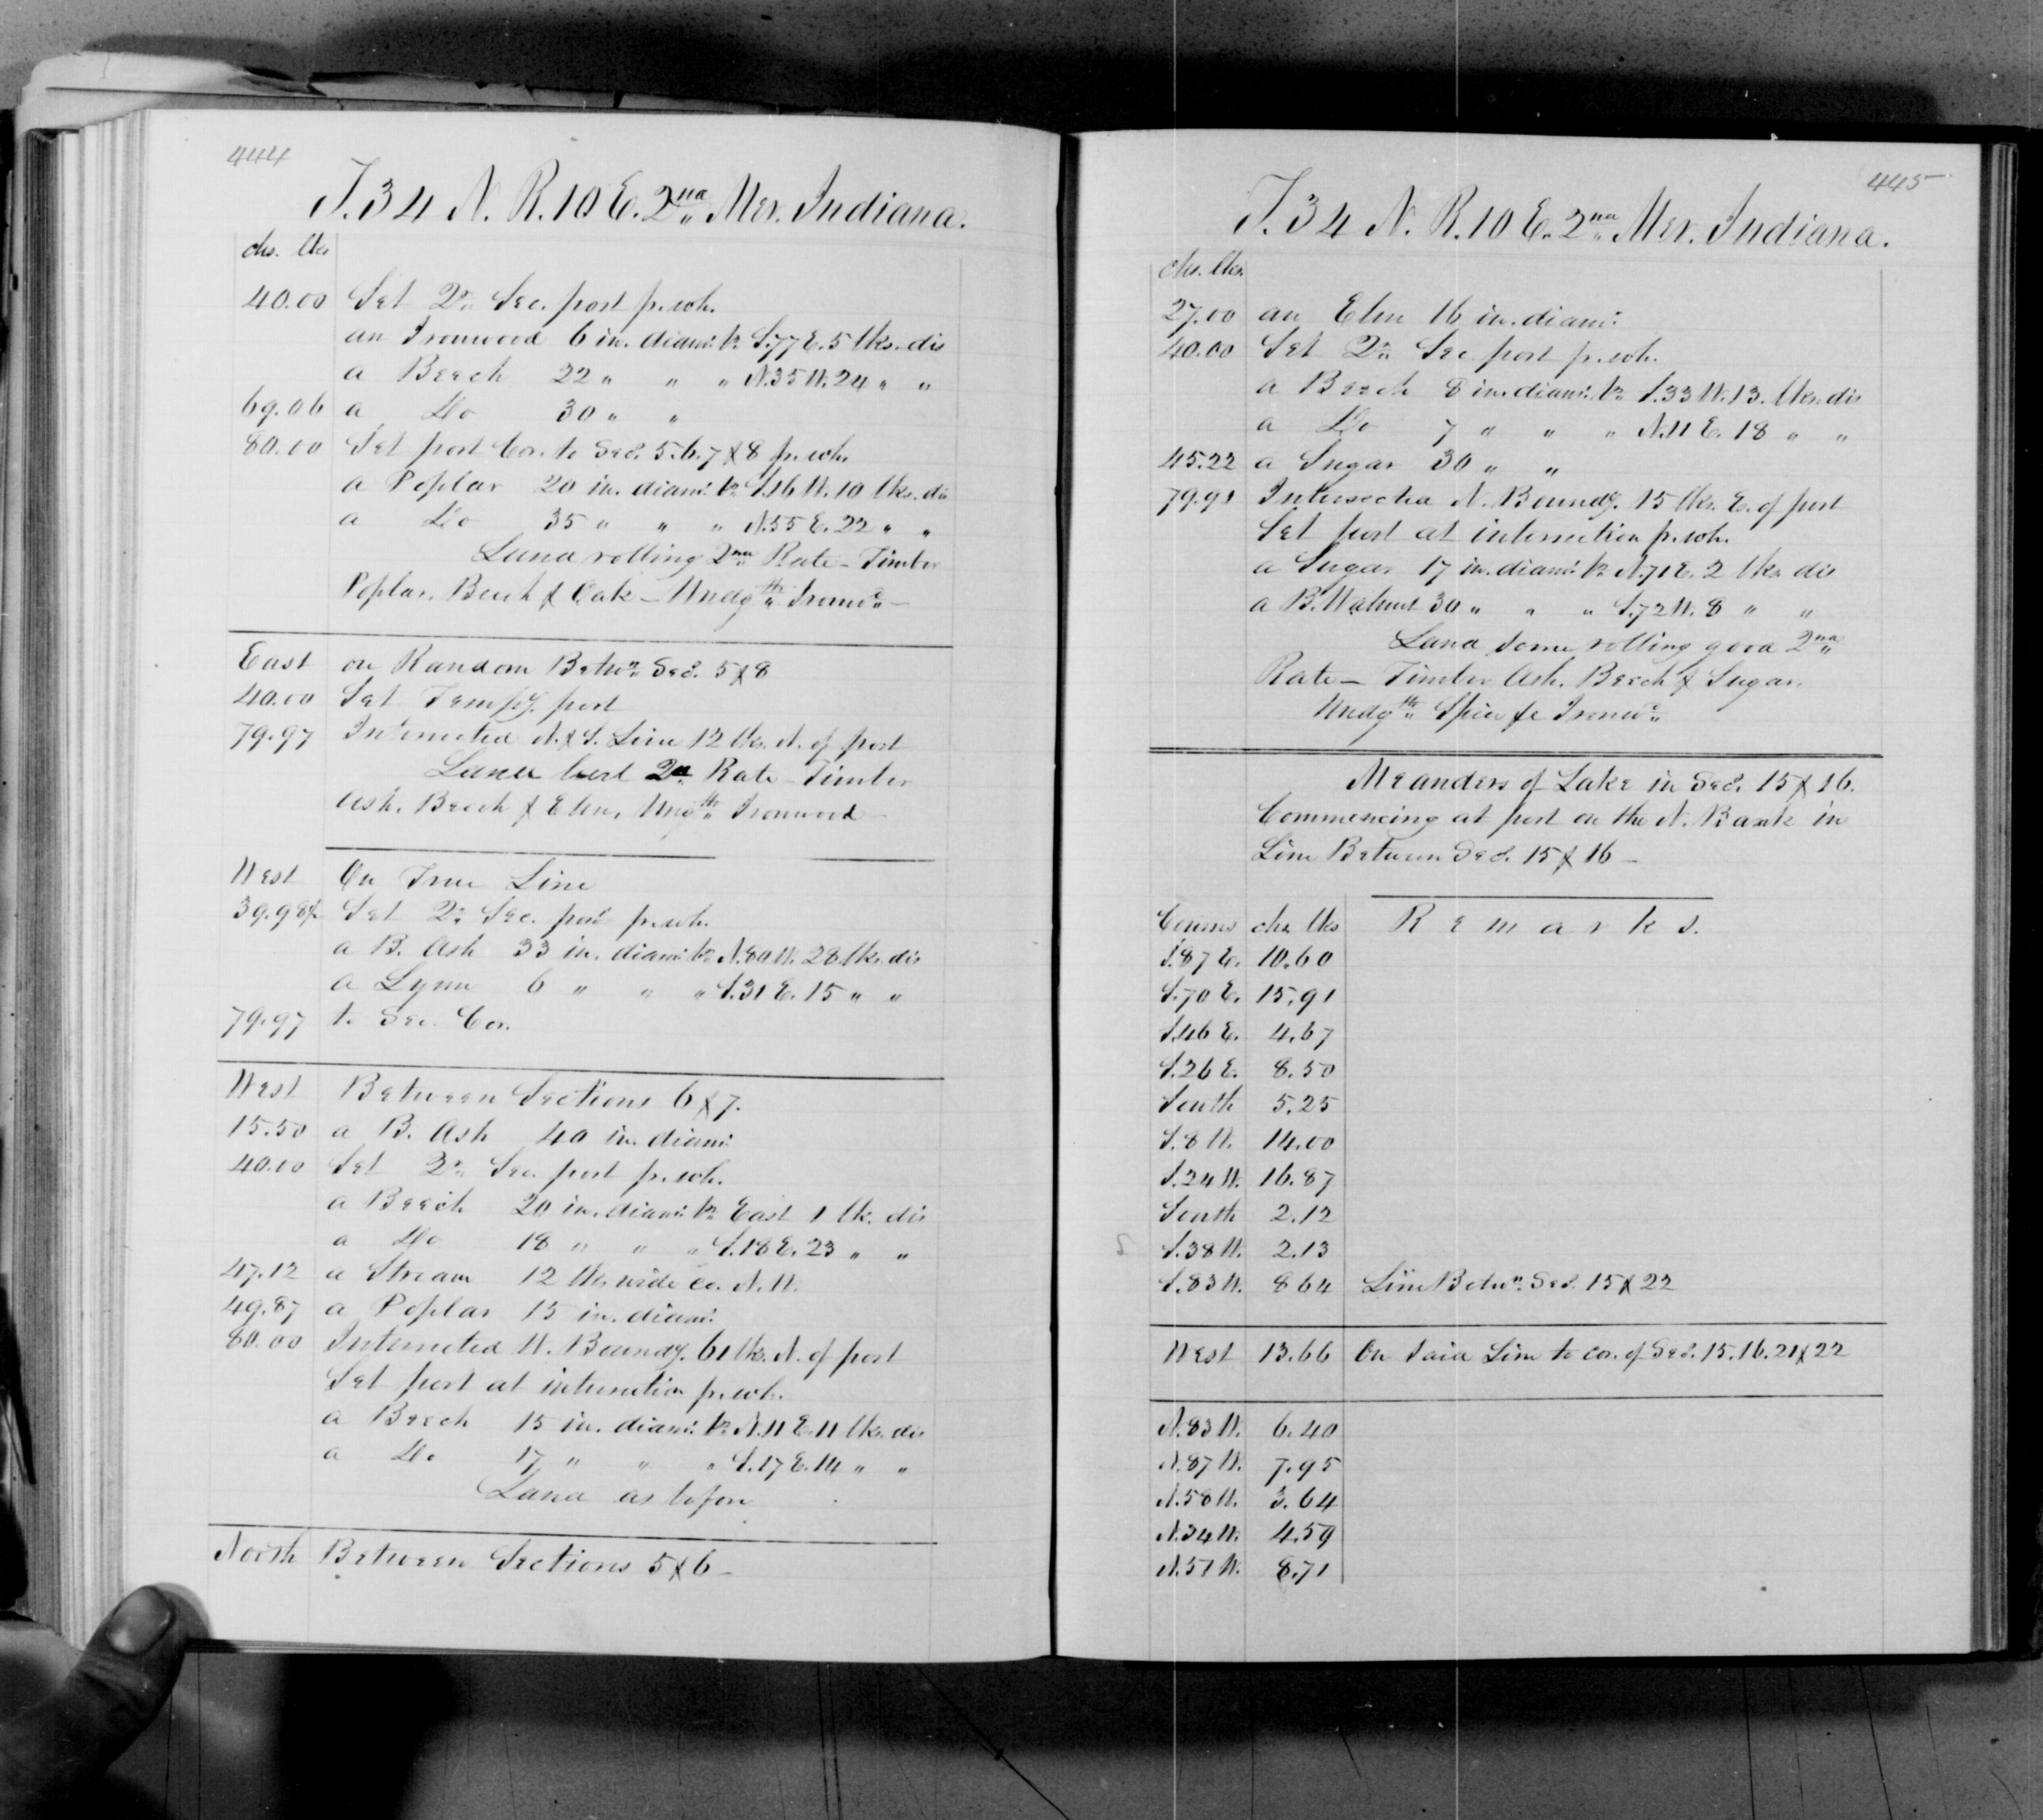 444
T.34 N. R.10 E. 2nd Mer. Indiana.
chs. lks
40.00 Set Qr. Sec. post pr. wh.
an Ironwood 6 in. diamr. br. S.77 E. 5 lks. dis
a Beech 22 " " " N.35 W. 24 " "
69.06 a Do 30 " "
80.00 Set post Cor. to Secs. 5.6.7 & 8 pr. wh.
a Poplar 20 in. diamr. br. S.16 W. 10 lks. dis
a Do 35 " " " N.55 E. 22 " "
Land rolling 2nd Rate – Timber
Poplar, Beech & Oak – Undgth Ironwd –
East on Random Betwn Secs. 5 & 8
40.00 Set Tempy. post
79.97 Intersected N. & S. Line 12 lks. N. of post
Land level 2d Rate – Timber
Ash, Beech & Elm, Ungth Ironwood –
West On True Line
39.98½ Set Qr. Sec. post pr. wh.
a B. Ash 33 in. diamr. br. N.80 W. 28 lks. dis
a Lynn 6 " " " S.31 E. 15 " "
79.97 to Sec. Cor.
West Between Sections 6 & 7.
15.50 a B. Ash 40 in. diamr.
40.00 Set Qr. Sec. post pr. wh.
a Beech 20 in. diamr. br. East 1 lk. dis
a Do 18 " " " S.18 E. 23 " "
47.12 a Stream 12 lks. wide co. N.W.
49.87 a Poplar 15 in. diamr.
80.00 Intersected W. Boundy. 61 lks. N. of post
Set post at intersection pr. wh.
a Beech 15 in. diamr. br. N.11 E. 11 lks. dis
a Do 17 " " " S.17 E. 14 " "
Land as before
North Between Sections 5 & 6 –
445
T.34 N. R.10 E. 2nd Mer. Indiana.
chs. lks.
27.00 an Elm 16 in. diamr.
40.00 Set Qr. Sec. post pr. wh.
a Beech 8 in. diamr. br. S.33 W. 13. lks. dis
a Do 7 " " " N.11 E. 18 " "
45.22 a Sugar 30 " "
79.91 Intersected N. Boundy. 15 lks. E. of post
Set post at intersection pr. wh.
a Sugar 17 in. diamr. br. N.71 E. 2 lks. dis
a B. Walnut 30 " " " S.72 W. 8 " "
Land some rolling good 2nd
Rate – Timber Ash, Beech & Sugar.
Undgth Spice & Ironwd
Meanders of Lake in Secs. 15 & 16.
Commencing at post on the N. Bank in
Line Between Secs. 15 & 16 –
Courses chs lks Remarks.
S.87 E. 10.60
S.70 E. 15.91
S.46 E. 4.67
S.26 E. 8.50
South 5.25
S.8 W. 14.00
S.24 W. 16.87
South 2.12
S S.38 W. 2.13
S.83 W. 8 64 Line Betwn. Secs. 15 & 22
West 13.66 On said Line to co. of Secs. 15.16.21 & 22
N.83 W. 6.40
N.87 W. 7.95
N.58 W. 3.64
N.34 W. 4.59
N.57 W. 8.71